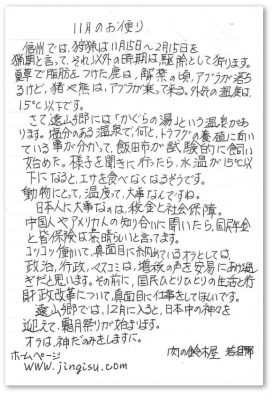 11月のお便り
信州では、狩猟は11月15日〜2月15日を
猟期と言って、それ以外の時期は駆除として狩ります。
夏草で脂肪をつけた鹿は、解禁の頃、アブラが落ち
るけど、猪や熊は、アブラが乗って来る。外気の温度は、
15℃以下です。
さて遠山郷には「かぐらの湯」という温泉があ
ります。塩分のある温泉で、何と、トラフグの養殖に向いて
いる事が分かって、飯田市が試験的に飼い
始めた。様子を聞きに行ったら、水温が15℃以
下になると、エサを食べなくなるそうです。
動物にとって、温度って、大事なんですね。
日本人に大事なのは、税金と社会保障。
中国人やアメリカ人の知り合いに聞いたら、国民年金
と皆保険は素晴らしいと言ってます。
コツコツ働いて、真面目に納めているオラとしては、
政治、行政、マスコミは、増税の声を安易にあげ過
ぎだと思います。その前に、国民ひとりひとりの生活と行
財政改革について、真面目に仕事をしてほしいです。
遠山郷では、12月に入ると、日本中の神々を
迎えて、霜月祭りが始まります。
オラは、神だのみをしますに。
肉の鈴木屋 若旦那
ホームページ
www.jingisu.com